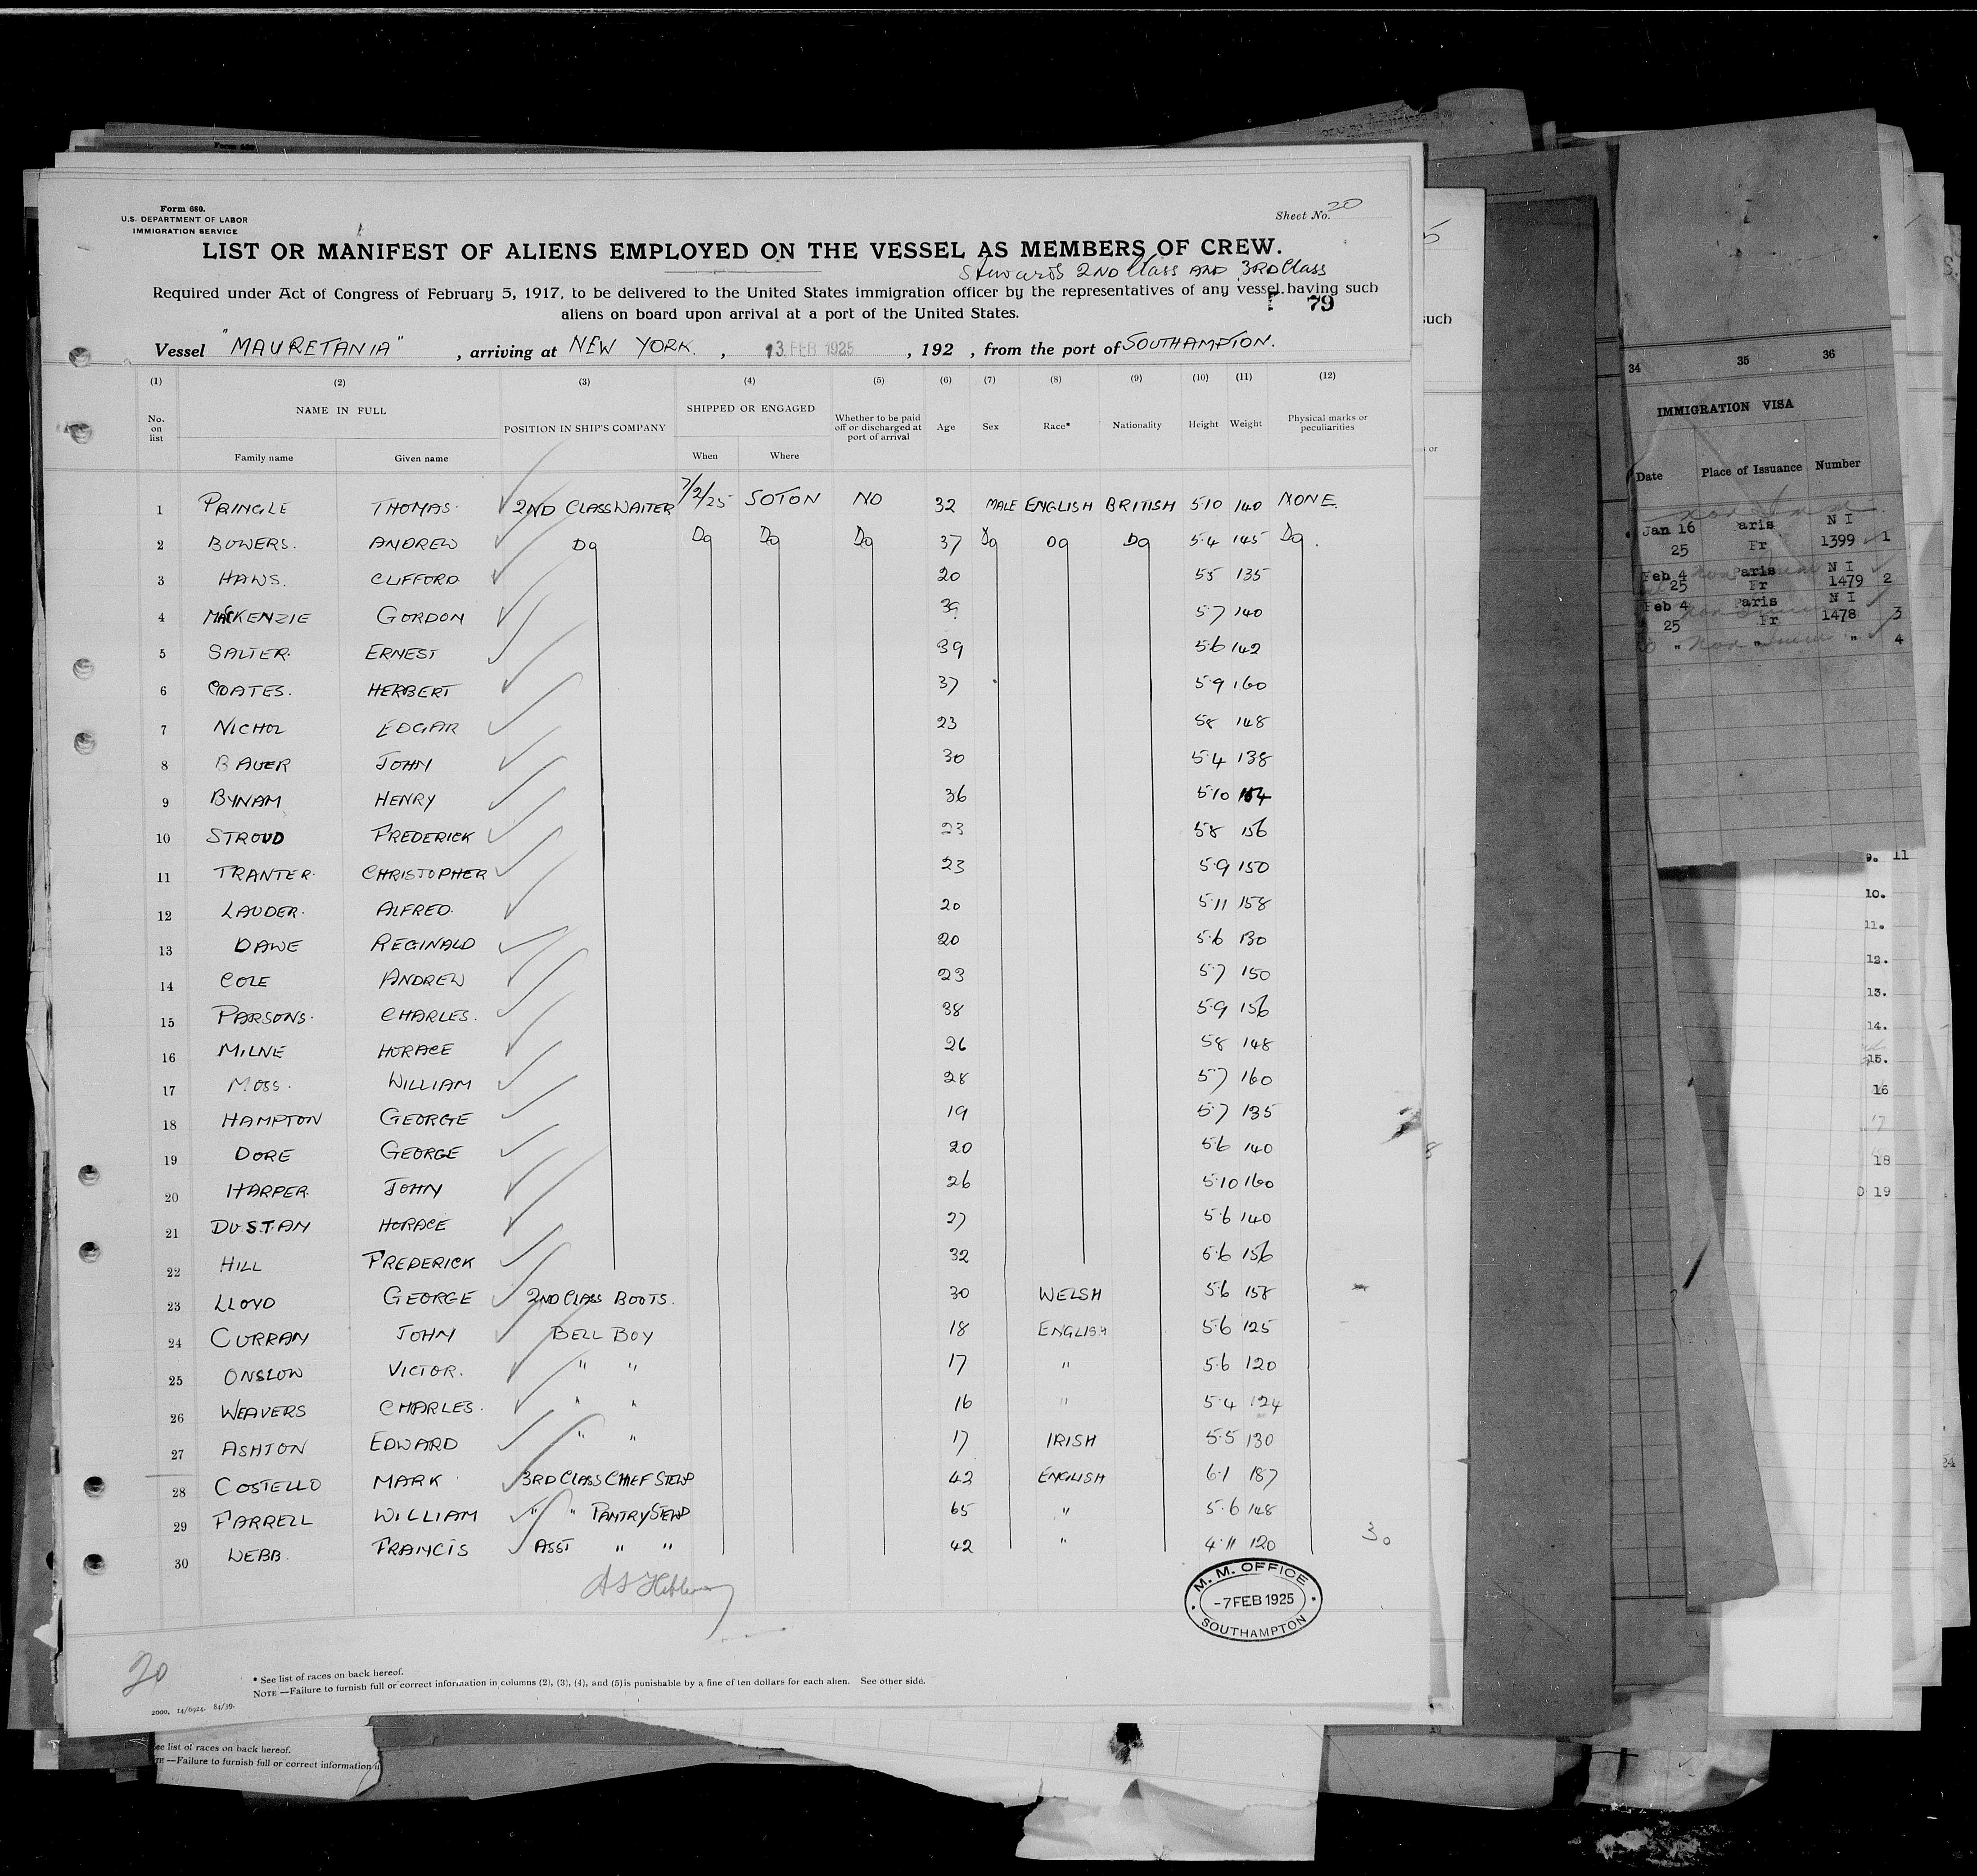 Form 680.
U.S. DEPARTMENT OF LABOR
IMMIGRATION SERVICE
Sheet No. 20
LIST OR MANIFEST OF ALIENS EMPLOYED ON THE VESSEL AS MEMBERS OF CREW.
Stewards 2ND Class AND 3RD Class
Required under Act of Congress of February 5, 1917, to be delivered to the United States immigration officer by the representatives of any vessel having such
aliens on board upon arrival at a port of the United States.
79
Vessel "MAURETANIA", arriving at NEW YORK., 13 FEB 1925, 192 , from the port of SOUTHAMPTON.
(1) (2) (3) (4) (5) (6) (7) (8) (9) (10) (11) (12)
No. on list NAME IN FULL Family name Given name POSITION IN SHIP'S COMPANY SHIPPED OR ENGAGED When Where Whether to be paid off or discharged at port of arrival Age Sex Race* Nationality Height Weight Physical marks or peculiarities
1 PRINGLE THOMAS. 2ND CLASS WAITER 7/2/25 SOTON NO 32 MALE ENGLISH BRITISH 5·10 140 NONE.
2 BOWERS. ANDREW Do Do Do Do 37 Do Do Do 5·4 145 Do.
3 HAWS. CLIFFORD 20 5·5 135
4 MACKENZIE GORDON 5·7 140
5 SALTER. ERNEST 39 5·6 142
6 COATES. HERBERT 37 5·9 160
7 NICHOL EDGAR 23 5·8 148
8 BAUER JOHN 30 5·4 138
9 BYNAM HENRY 36 5·10 164
10 STROUD FREDERICK 23 5·8 156
11 TRANTER. CHRISTOPHER 23 5·9 150
12 LAUDER. ALFRED. 20 5·11 158
13 DAWE REGINALD 20 5·6 130
14 COLE ANDREW 23 5·7 150
15 PARSONS. CHARLES. 38 5·9 156
16 MILNE HORACE 26 5·8 148
17 MOSS. WILLIAM 28 5·7 160
18 HAMPTON GEORGE 19 5·7 135
19 DORE GEORGE 20 5·6 140
20 HARPER. JOHN 26 5·10 160
21 DUSTAN HORACE 27 5·6 140
22 HILL FREDERICK 32 5·6 156
23 LLOYD GEORGE 2ND CLASS BOOTS. 30 WELSH 5·6 158
24 CURRAN JOHN BELL BOY 18 ENGLISH 5·6 125
25 ONSLOW VICTOR. " " 17 " 5·6 120
26 WEAVERS CHARLES. " " 16 " 5·4 124
27 ASHTON EDWARD " " 17 IRISH 5·5 130
28 COSTELLO MARK 3RD CLASS CHIEF STEWD 42 ENGLISH 6·1 187
29 FARRELL WILLIAM " " PANTRY STEWD 65 " 5·6 148
30 WEBB. FRANCIS ASST " " 42 " 4·11 120
30
M. M. OFFICE
-7 FEB 1925
SOUTHAMPTON
20
* See list of races on back hereof.
NOTE —Failure to furnish full or correct information in columns (2), (3), (4), and (5) is punishable by a fine of ten dollars for each alien. See other side.
2000. 14/6924. 84/39.
ee list of races on back hereof.
TE —Failure to furnish full or correct information
such
or
34 35 36
IMMIGRATION VISA
Date Place of Issuance Number
Jan 16 aris N I
25 Fr 1399 1
Feb 4 Paris N I
25 Fr 1479 2
Feb 4 Paris N I
25 Fr 1478 3
" " " 4
9. 11
10.
11.
12.
13.
14.
15.
16
17
18
0 19
24